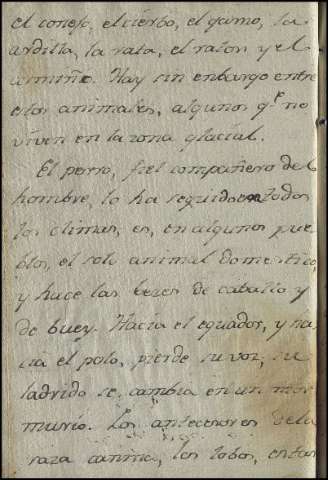 el conejo, el cierbo, el gamo, la
ardilla, la rata, el raton y el
armiño. Hay sin enbargo entre
estos animales, algunos q.e no
viven en la zona glacial.
El perro, fiel compañero del
hombre, lo ha seguido en todos
los climas, es, en algunos pue
blos, el solo animal domestico,
y hace las bezes de caballo y
de buey. Hacia el equador, y ha
cia el polo, pierde su voz, su
ladrido se cambia en un mor
murio. Los antecesores de la
raza canina, los lobos, estan